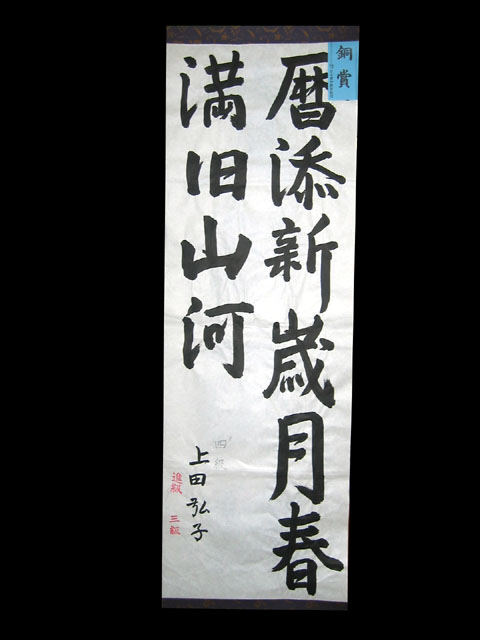 銅賞
暦添新歳月春
満旧山河
四級
上田弘子
進級 三級